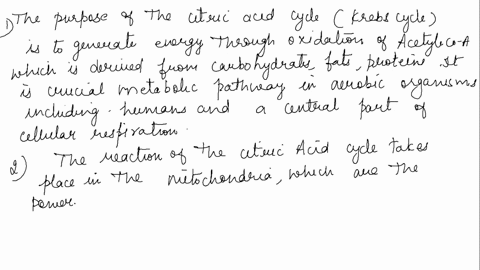 1) The purpose of the citric acid cycle (Krebs cycle)
is to generate energy through oxidation of Acetyl co-A
which is derived from carbohydrates, fats, proteins. It
is crucial metabolic pathway in aerobic organisms
including humans and a central part of
cellular respiration.
2) The reaction of the citric Acid cycle takes
place in the mitochondria, which are the
power.